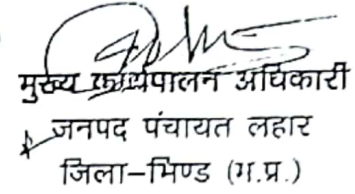 मुख्य कार्यपालन अधिकारी
जनपद पंचायत लहार
जिला-भिण्ड (म.प्र.)